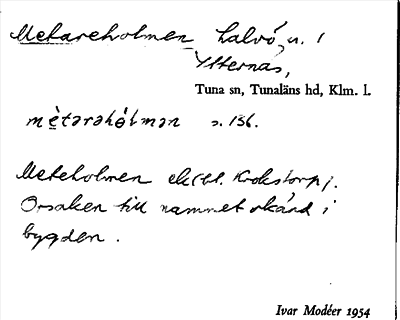 Metareholmen halvö, n. i
Ytternäs,
Tuna sn, Tunaläns hd, Klm. l.
mètarahólman s. 136.
Meteholmen ek(bl. Krokstorp).
Orsaken till namnet okänd i
bygden.
Ivar Modéer 1954